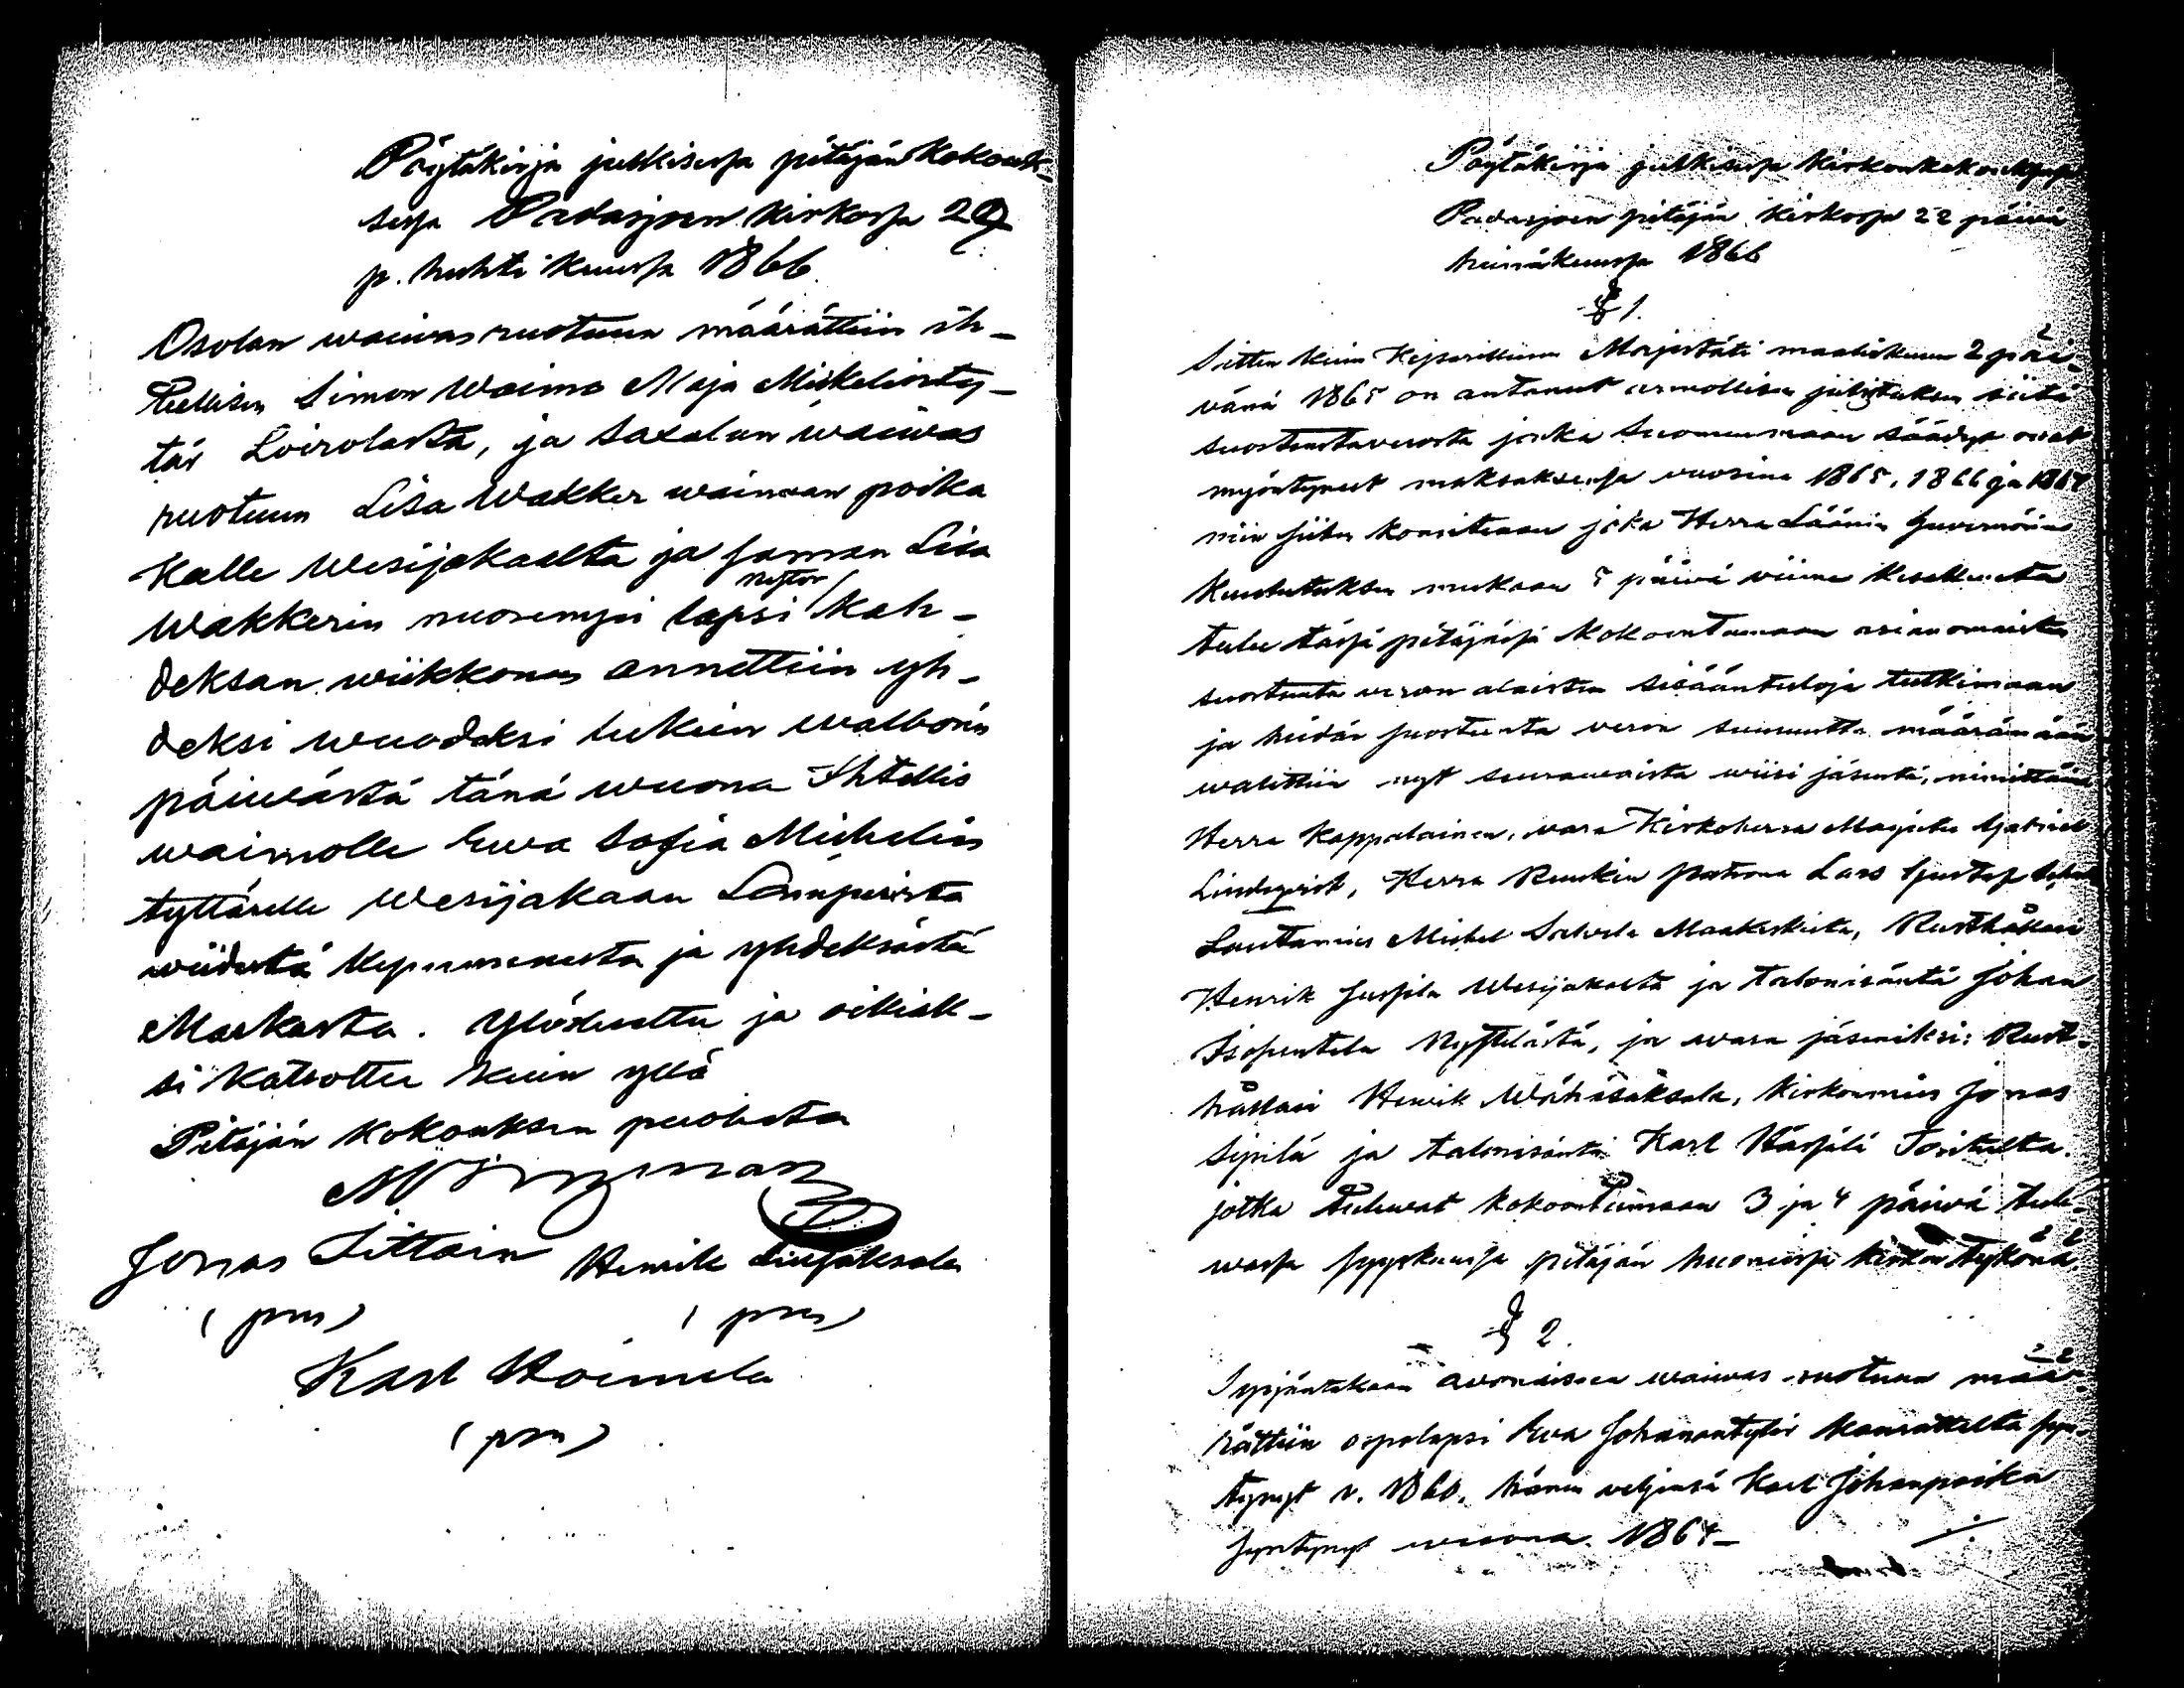 Pöytäkirja julkisessa pitäjän kokouk-
sessa Padasjoen kirkossa 29
p. huhti kuussa 1866.
Osolan waiwas ruotuun määrättiin ih-
tellisen Simon Waimo Maja Mickelintyt-
tär Loirolasta, ja Saxalan waiwas
ruotuun Lisa Wakker waimon poika
Kalle Wesijakaalta ja saman Lisa
Wakkerin nuorempi lapsi kah-
deksan wiikkonen annettiin yh-
deksi wuodeksi lukein walborin
päiwästä tänä wuona Ihtellis
waimolle Ewa Sofia Michelin
tyttärelle Wesijakaan
wiidestä ja yhdeksästä
Markasta. Ylösluettu ja oikiak-
si katsottu kuin yllä
Pitäjän kokouksen puolesta
Jonas Sittari Henrik
(pm) (pm)
Karl Hoimela
(pm)
Pöytäkirja julkisessa kirkonkokouksessa
Padasjoen pitäjän kirkossa 22 päivä
heinäkuussa 1866
§ 1.
Sitten kuin Keisarillinen Majestäti maaliskuun 2 päi-
vänä 1865 on antanut armollisen julistuksen siitä
suostuntaverosta jonka Suomenmaan säädyt ovat
myöntyneet maksaksensa vuosina 1865, 1866 ja 1867
niin siihen komiteaan joka Herra Läänin Guvernörin
Kuulutuksen mukaan 5 päivä viime kesäkuuta
tulee tässä pitäjässä kokoontumaan asianomaisten
suostunta veron alaisten sisääntuloja tutkimaan
ja heidän suostunta veron suuruutta määräämään
walittiin nyt seurawaista wiisi jäsentä, nimittäin
Herra Kappalainen, vara Kirkoherra Magister Gabriel
Lindqvist, Herra Ruukin patrona Lars Gustaf
Lautamies Michel Maakeskista, Rusthållari
Henrik Jussila Wesijakaalta ja talonisäntä Johan
Isopentela Nystölästä, ja wara jäseniksi: Rust-
hållari Henrik Wähäsaksala, kirkonmies Jonas
Sipilä ja talonisäntä Karl Toritulta.
jotka tulewat kokoontumaan 3 ja 4 päiwä tule-
wassa syyskuussa pitäjän huoneessa kirkon tykönä.
§ 2.
awonaiseen waiwas ruotuun mää-
rättiin orpolapsi Ewa Johanantytär syn-
tynyt v. 1860, hänen veljensä Karl Johanpoika
syntynyt wuona 1864-